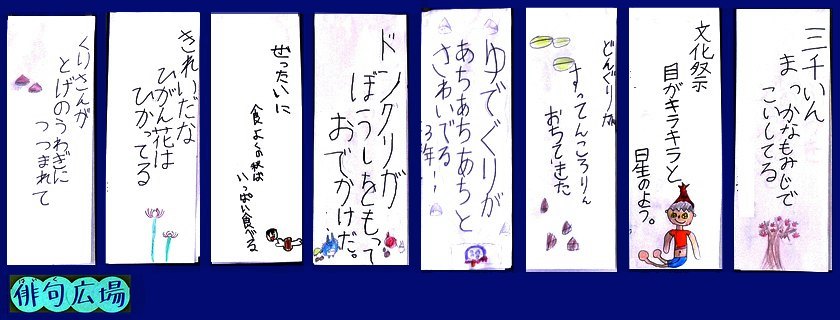 三千いん
まっかなもみじで
こいしてる
文化祭示
目がキラキラと
星のよう。
どんぐりが
すってんころりん
おちてきた
ゆでぐりが
あちあちあちと
さわいでる
3年
ドングリが
ぼうしをもって
おでかけだ。
ぜったいに
食よくの秋は
いっぱい食べる
きれいだな
ひがん花は
ひかってる
くりさんが
とげのうわぎに
つつまれて
俳句広場